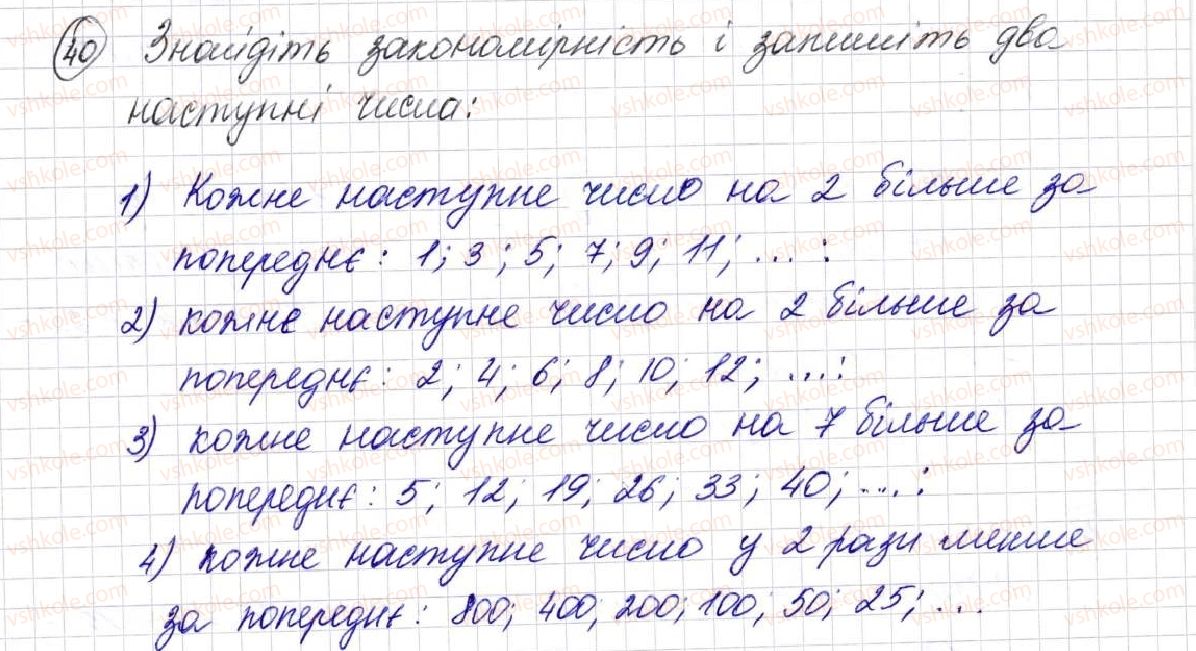 40 Знайдіть закономірність і запишіть два
наступні числа:
1) Кожне наступне число на 2 більше за
попереднє: 1; 3; 5; 7; 9; 11; ... :
2) кожне наступне число на 2 більше за
попереднє: 2; 4; 6; 8; 10; 12; ... :
3) кожне наступне число на 7 більше за
попереднє: 5; 12; 19; 26; 33; 40; ... :
4) кожне наступне число у 2 рази менше
за попереднє: 800; 400; 200; 100; 50; 25; ...